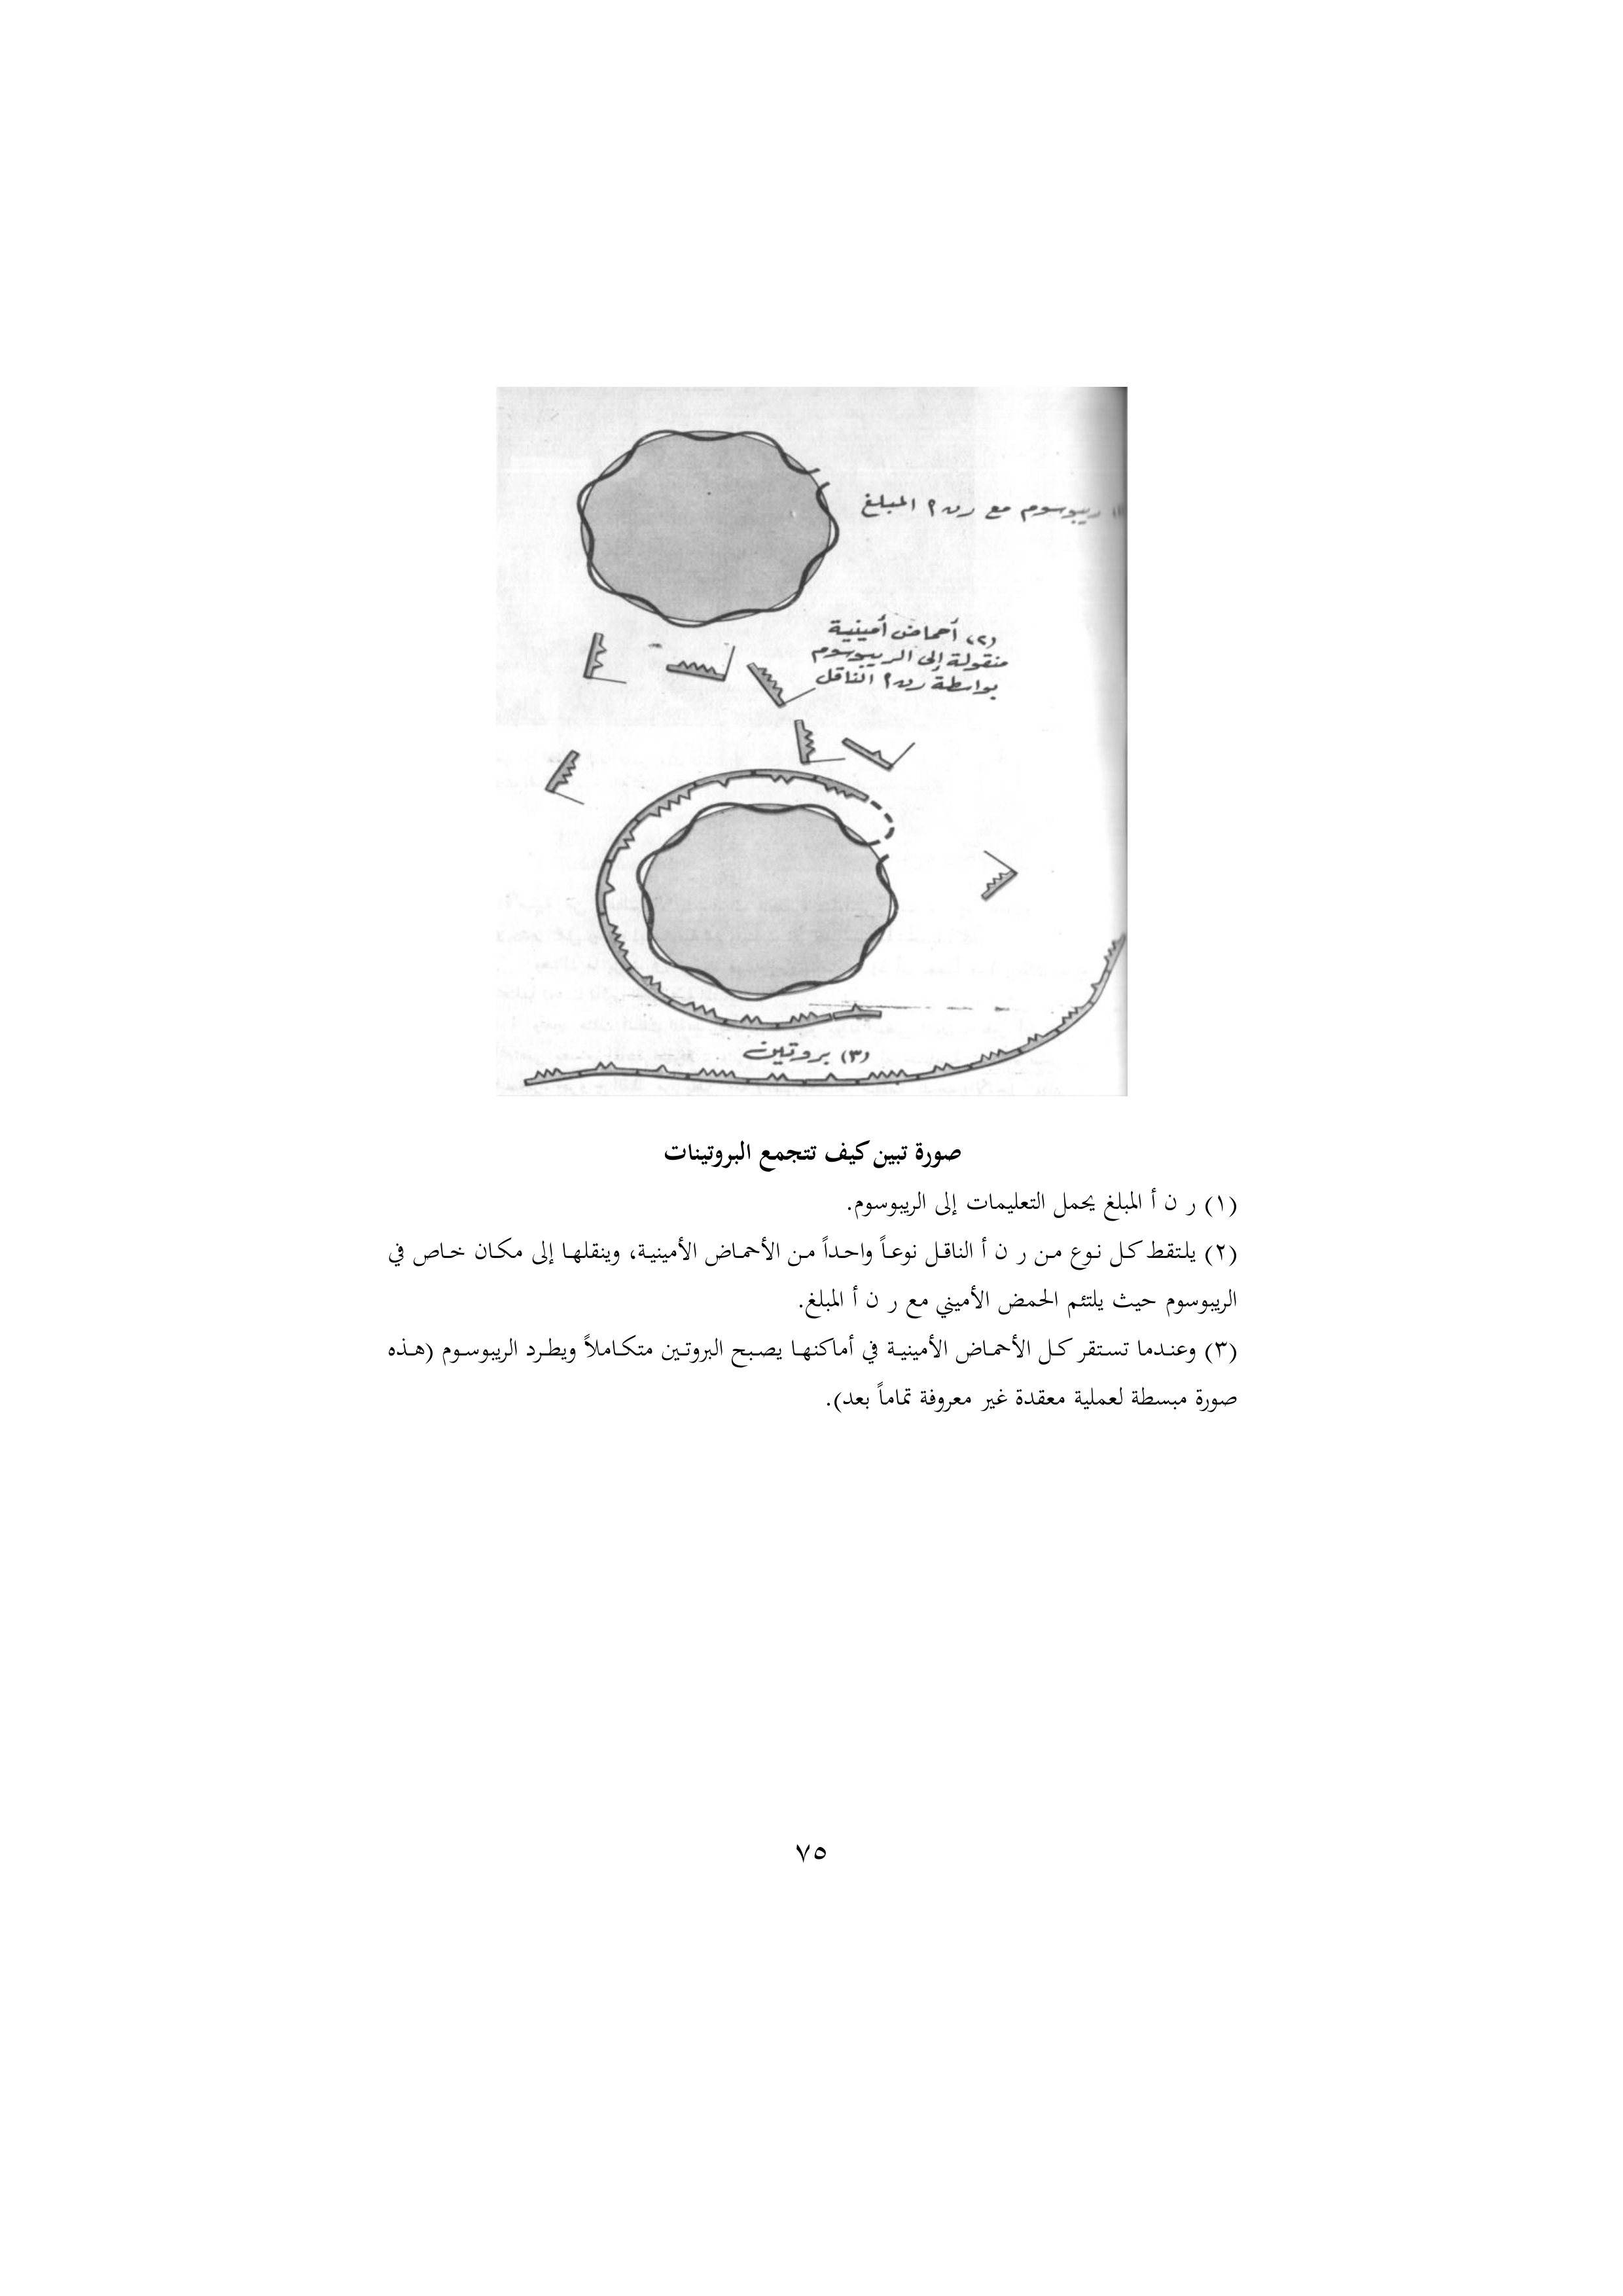 (١) ريبوسوم مع رن٢ المبلغ
(٢) أحماض أمينية
منقولة إلى الريبوسوم
بواسطة رن٢ الناقل
(٣) بروتين
صورة تبين كيف تتجمع البروتينات
(١) ر ن أ المبلغ يحمل التعليمات إلى الريبوسوم.
(٢) يلتقط كل نوع من ر ن أ الناقل نوعاً واحداً من الأحماض الأمينية، وينقلها إلى مكان خاص في
الريبوسوم حيث يلتئم الحمض الأميني مع ر ن أ المبلغ.
(٣) وعندما تستقر كل الأحماض الأمينية في أماكنها يصبح البروتين متكاملاً ويطرد الريبوسوم (هذه
صورة مبسطة لعملية معقدة غير معروفة تماماً بعد).
٧٥